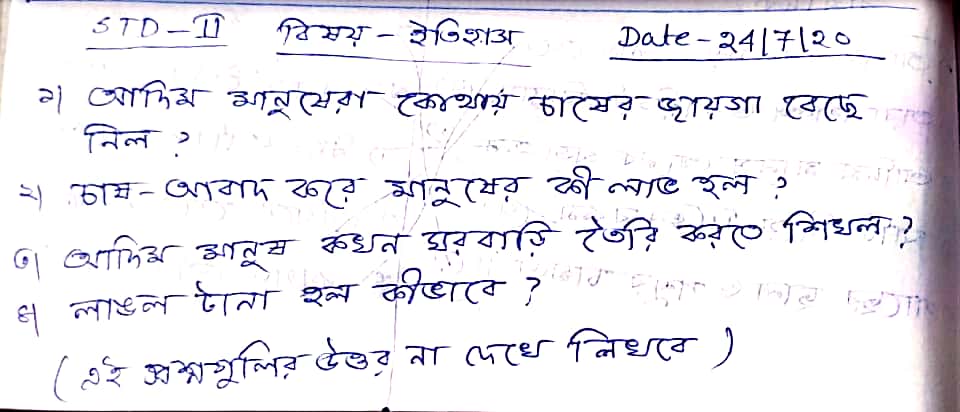 STD-II বিষয় - ইতিহাস Date - 24/7/20
১| আদিম মানুষেরা কোথায় চাষের জায়গা বেছে
নিল ?
২| চাষ-আবাদ করে মানুষের কী লাভ হল ?
৩| আদিম মানুষ কখন ঘরবাড়ি তৈরি করতে শিখল ?
৪| লাঙল টানা হল কীভাবে ?
( এই প্রশ্নগুলির উত্তর না দেখে লিখবে )